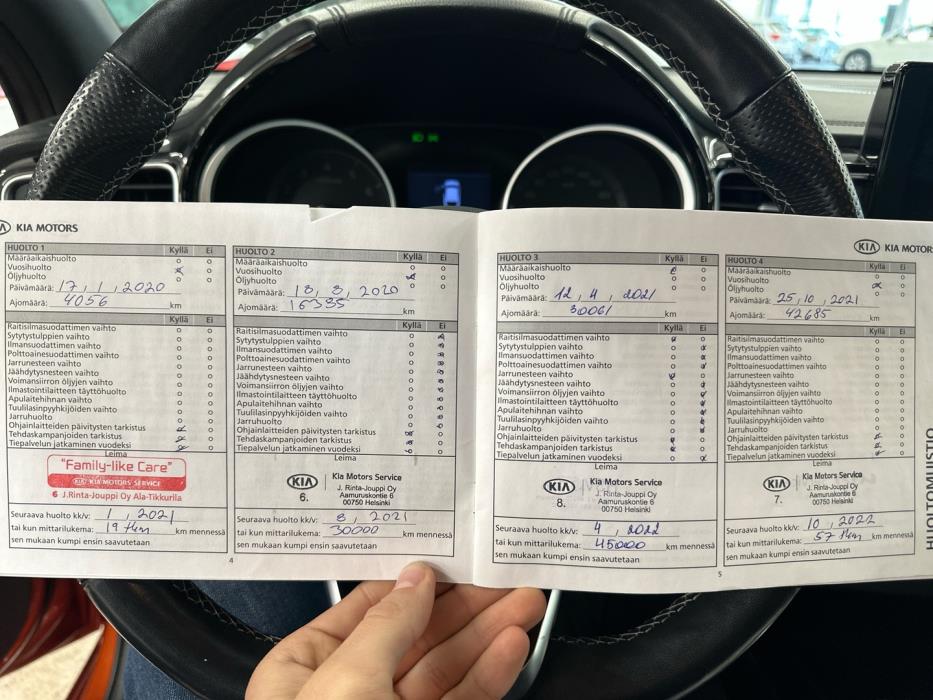 KIA MOTORS
HUOLTO 1 Kyllä Ei
Määräaikaishuolto
Vuosihuolto
Öljyhuolto
Päivämäärä: 17, 1, 2020
Ajomäärä: 4056 km
Kyllä Ei
Raitisilmasuodattimen vaihto
Sytytystulppien vaihto
Ilmansuodattimen vaihto
Polttoainesuodattimen vaihto
Jarrunesteen vaihto
Jäähdytysnesteen vaihto
Voimansiirron öljyjen vaihto
Ilmastointilaitteen täyttöhuolto
Apulaitehihnan vaihto
Tuulilasinpyyhkijöiden vaihto
Jarruhuolto
Ohjainlaitteiden päivitysten tarkistus
Tehdaskampanjoiden tarkistus
Tiepalvelun jatkaminen vuodeksi
Leima
"Family-like Care"
KIA MOTORS SERVICE
6 J.Rinta-Jouppi Oy Ala-Tikkurila
Seuraava huolto kk/v: 1, 2021
tai kun mittarilukema: 19 tkm km mennessä
sen mukaan kumpi ensin saavutetaan
HUOLTO 2 Kyllä Ei
Määräaikaishuolto
Vuosihuolto
Öljyhuolto
Päivämäärä: 18, 8, 2020
Ajomäärä: 16385 km
Kyllä Ei
Raitisilmasuodattimen vaihto
Sytytystulppien vaihto
Ilmansuodattimen vaihto
Polttoainesuodattimen vaihto
Jarrunesteen vaihto
Jäähdytysnesteen vaihto
Voimansiirron öljyjen vaihto
Ilmastointilaitteen täyttöhuolto
Apulaitehihnan vaihto
Tuulilasinpyyhkijöiden vaihto
Jarruhuolto
Ohjainlaitteiden päivitysten tarkistus
Tehdaskampanjoiden tarkistus
Tiepalvelun jatkaminen vuodeksi
Leima
KIA Kia Motors Service
J. Rinta-Jouppi Oy
6. Aamuruskontie 6
00750 Helsinki
Seuraava huolto kk/v: 8, 2021
tai kun mittarilukema: 30000 km mennessä
sen mukaan kumpi ensin saavutetaan
4
HUOLTO 3 Kyllä Ei
Määräaikaishuolto
Vuosihuolto
Öljyhuolto
Päivämäärä: 12, 4, 2021
Ajomäärä: 30061 km
Kyllä Ei
Raitisilmasuodattimen vaihto
Sytytystulppien vaihto
Ilmansuodattimen vaihto
Polttoainesuodattimen vaihto
Jarrunesteen vaihto
Jäähdytysnesteen vaihto
Voimansiirron öljyjen vaihto
Ilmastointilaitteen täyttöhuolto
Apulaitehihnan vaihto
Tuulilasinpyyhkijöiden vaihto
Jarruhuolto
Ohjainlaitteiden päivitysten tarkistus
Tehdaskampanjoiden tarkistus
Tiepalvelun jatkaminen vuodeksi
Leima
KIA Kia Motors Service
J. Rinta-Jouppi Oy
8. Aamuruskontie 6
00750 Helsinki
Seuraava huolto kk/v: 4, 2022
tai kun mittarilukema: 45000 km mennessä
sen mukaan kumpi ensin saavutetaan
KIA KIA MOTOR
HUOLTO 4 Kyllä Ei
Määräaikaishuolto
Vuosihuolto
Öljyhuolto
Päivämäärä: 25, 10, 2021
Ajomäärä: 42685 km
Kyllä Ei
Raitisilmasuodattimen vaihto
Sytytystulppien vaihto
Ilmansuodattimen vaihto
Polttoainesuodattimen vaihto
Jarrunesteen vaihto
Jäähdytysnesteen vaihto
Voimansiirron öljyjen vaihto
Ilmastointilaitteen täyttöhuolto
Apulaitehihnan vaihto
Tuulilasinpyyhkijöiden vaihto
Jarruhuolto
Ohjainlaitteiden päivitysten tarkistus
Tehdaskampanjoiden tarkistus
Tiepalvelun jatkaminen vuodeksi
Leima
KIA Kia Motors Service
J. Rinta-Jouppi Oy
7. Aamuruskontie 6
00750 Helsinki
Seuraava huolto kk/v: 10, 2022
tai kun mittarilukema: 57 tkm km mennessä
sen mukaan kumpi ensin saavutetaan
5
HUOLTOMUISTIO